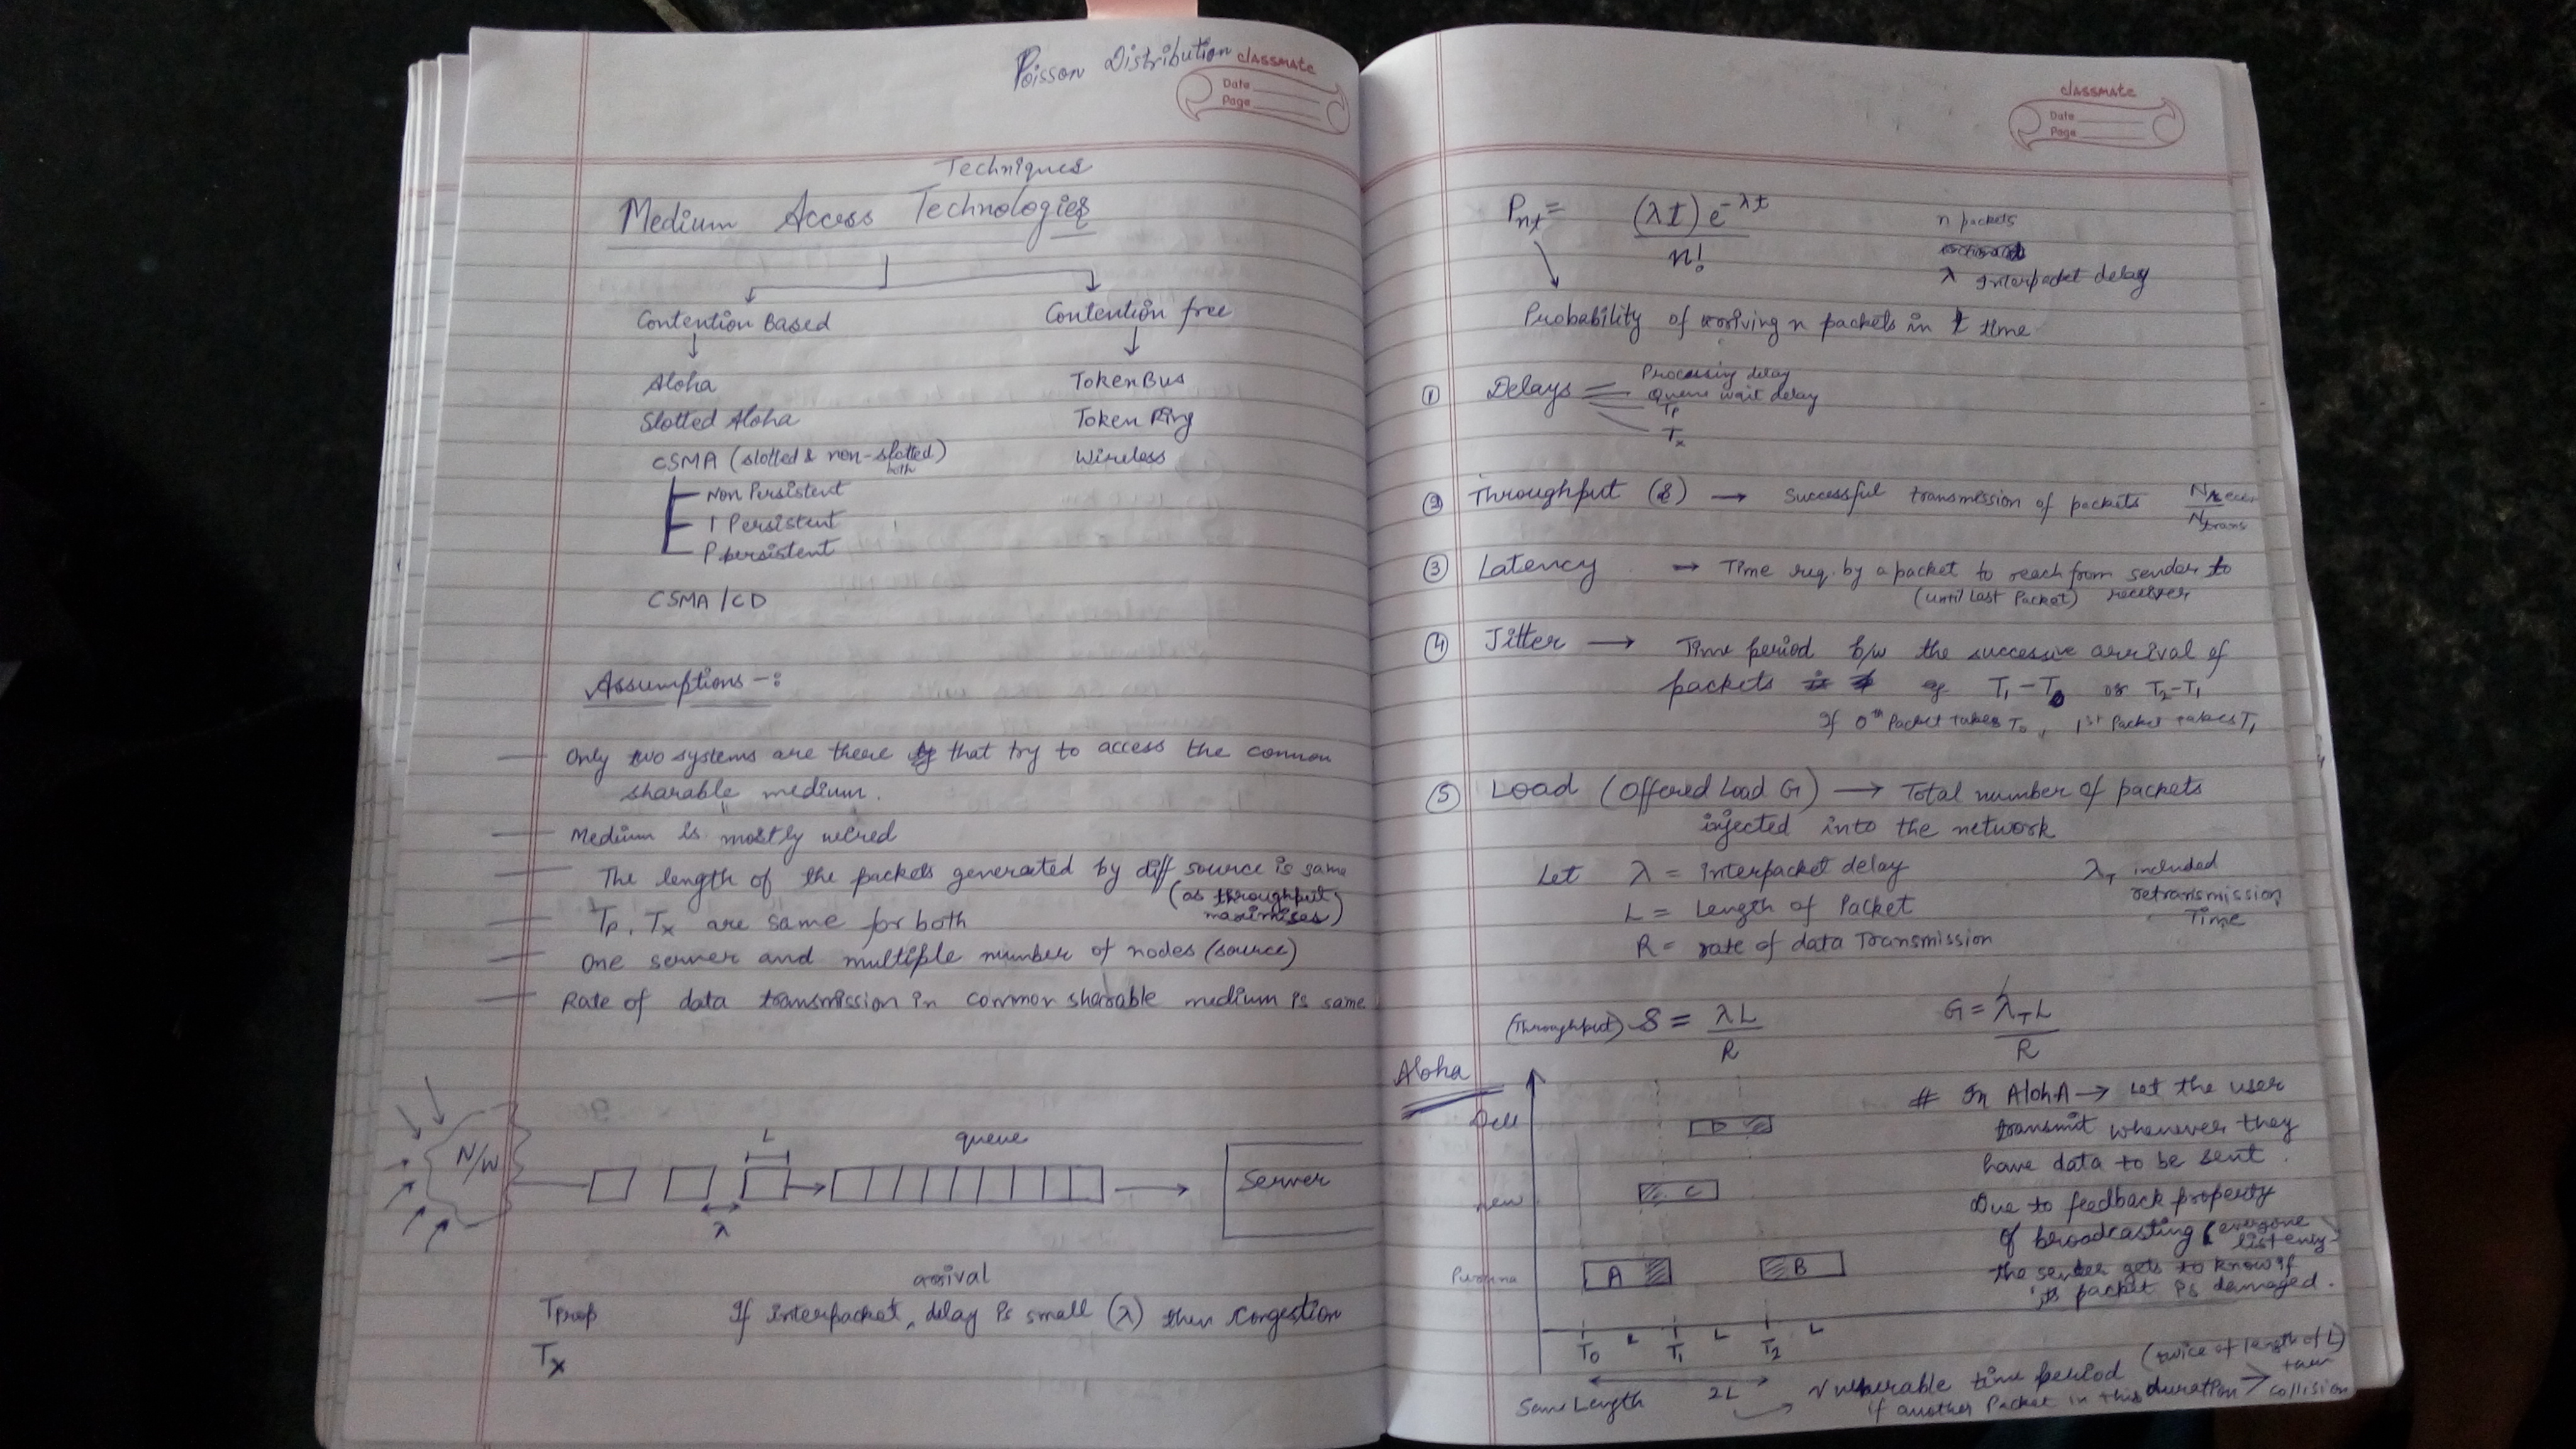 Poisson Distribution
classmate
Date
Page
Techniques
Medium Access Technologies
Contention Based
Contention free
Aloha
TokenBus
Slotted Aloha
Token Ring
CSMA (slotted & non-slotted)
both
Wireless
Non Persistent
1 Persistent
P persistent
CSMA/CD
Assumptions -:
— Only two systems are there that try to access the common
sharable medium.
— Medium is mostly wired
— The length of the packets generated by diff source is same
(as throughput
maximises)
— Tp, Tx are same for both
— One server and multiple number of nodes (source)
— Rate of data transmission in common sharable medium is same
N/W
L
queue
Server
λ
arrival
Tprop
If interpacket, delay is small (λ) then congestion
Tx
classmate
Date
Page
Pnt = (λt) e^-λt
n!
n packets
λ Interpacket delay
Probability of arriving n packets in t time
① Delays
Processing delay
Queue wait delay
Tp
Tx
② Throughput (S) → Successful transmission of packets
Ntrans
③ Latency → Time req. by a packet to reach from sender to
(until last Packet) receiver
④ Jitter → Time period b/w the successive arrival of
packets eg T1-T0 or T2-T1
If 0th Packet takes T0, 1st Packet takes T1
⑤ Load (Offered Load G) → Total number of packets
injected into the network
Let λ = Interpacket delay
L = Length of Packet
R = rate of data Transmission
λT included
retransmission
Time
(Throughput) S = λL
R
G = λTL
R
Aloha
D
new
C
A
B
T0 L T1 L T2 L
Same Length
2L
# In AlohA → Let the user
transmit whenever they
have data to be sent.
Due to feedback property
of broadcasting (everyone
the sender gets to know if
its packet is damaged.
Vulnerable time period (twice of length of L)
if another Packet in this duration > collision